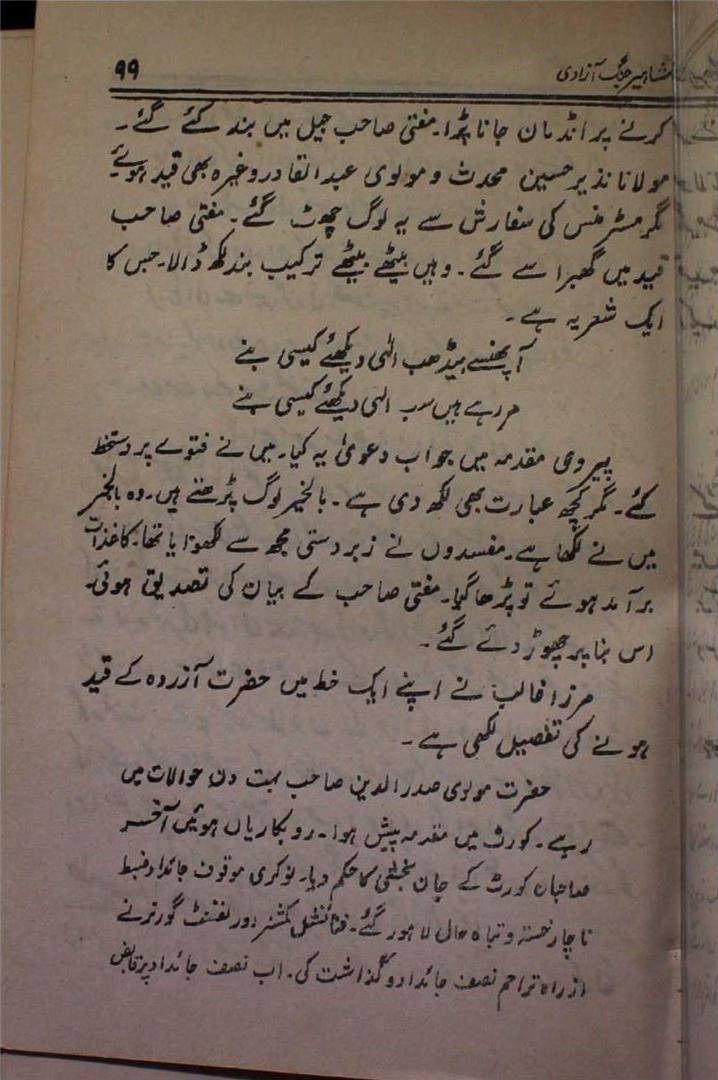 مشاہیر جنگ آزادی ۹۹
کرنے پر انڈمان جانا پڑا۔ مفتی صاحب جیل میں بند کئے گئے۔
مولانا نذیر حسین محدث و مولوی عبدالقادر وغیرہ بھی قید ہوئے
مگر مسٹر منس کی سفارش سے یہ لوگ چھوٹ گئے۔ مفتی صاحب
قید میں گھبرا سے گئے۔ وہیں بیٹھے بیٹھے ترکیب بند لکھ ڈالا۔ جس کا
ایک شعر یہ ہے۔
آپھنسے بیڈھب الٰہی دیکھئے کیسی بنے
مر رہے ہیں سب الٰہی دیکھئے کیسی بنے
پیروی مقدمہ میں جواب دعویٰ یہ کیا۔ میں نے فتوے پر دستخط
کئے۔ مگر کچھ عبارت بھی لکھ دی ہے۔ بالخیر لوگ پڑھتے ہیں۔ وہ بالجبر
میں نے لکھا ہے۔ مفسدوں نے زبردستی مجھ سے لکھوایا تھا۔ کاغذات
برآمد ہوئے تو پڑھا گیا۔ مفتی صاحب کے بیان کی تصدیق ہوئی۔
اس بنا پر چھوڑ دئے گئے۔
مرزا غالب نے اپنے ایک خط میں حضرت آزردہ کے قید
ہونے کی تفصیل لکھی ہے۔
حضرت مولوی صدرالدین صاحب بہت دن حوالات میں
رہے۔ کورٹ میں مقدمہ پیش ہوا۔ روبکاریاں ہوئیں آخر
صاحبان کورٹ کے جان بخشی کا حکم دیا۔ نوکری موقوف جائداد ضبط
ناچار خستہ و تباہ حالی لاہور گئے۔ فنانشل کمشنر اور لفٹنٹ گورنر نے
از راہ تراحم نصف جائداد واگذاشت کی۔ اب نصف جائداد پر قابض